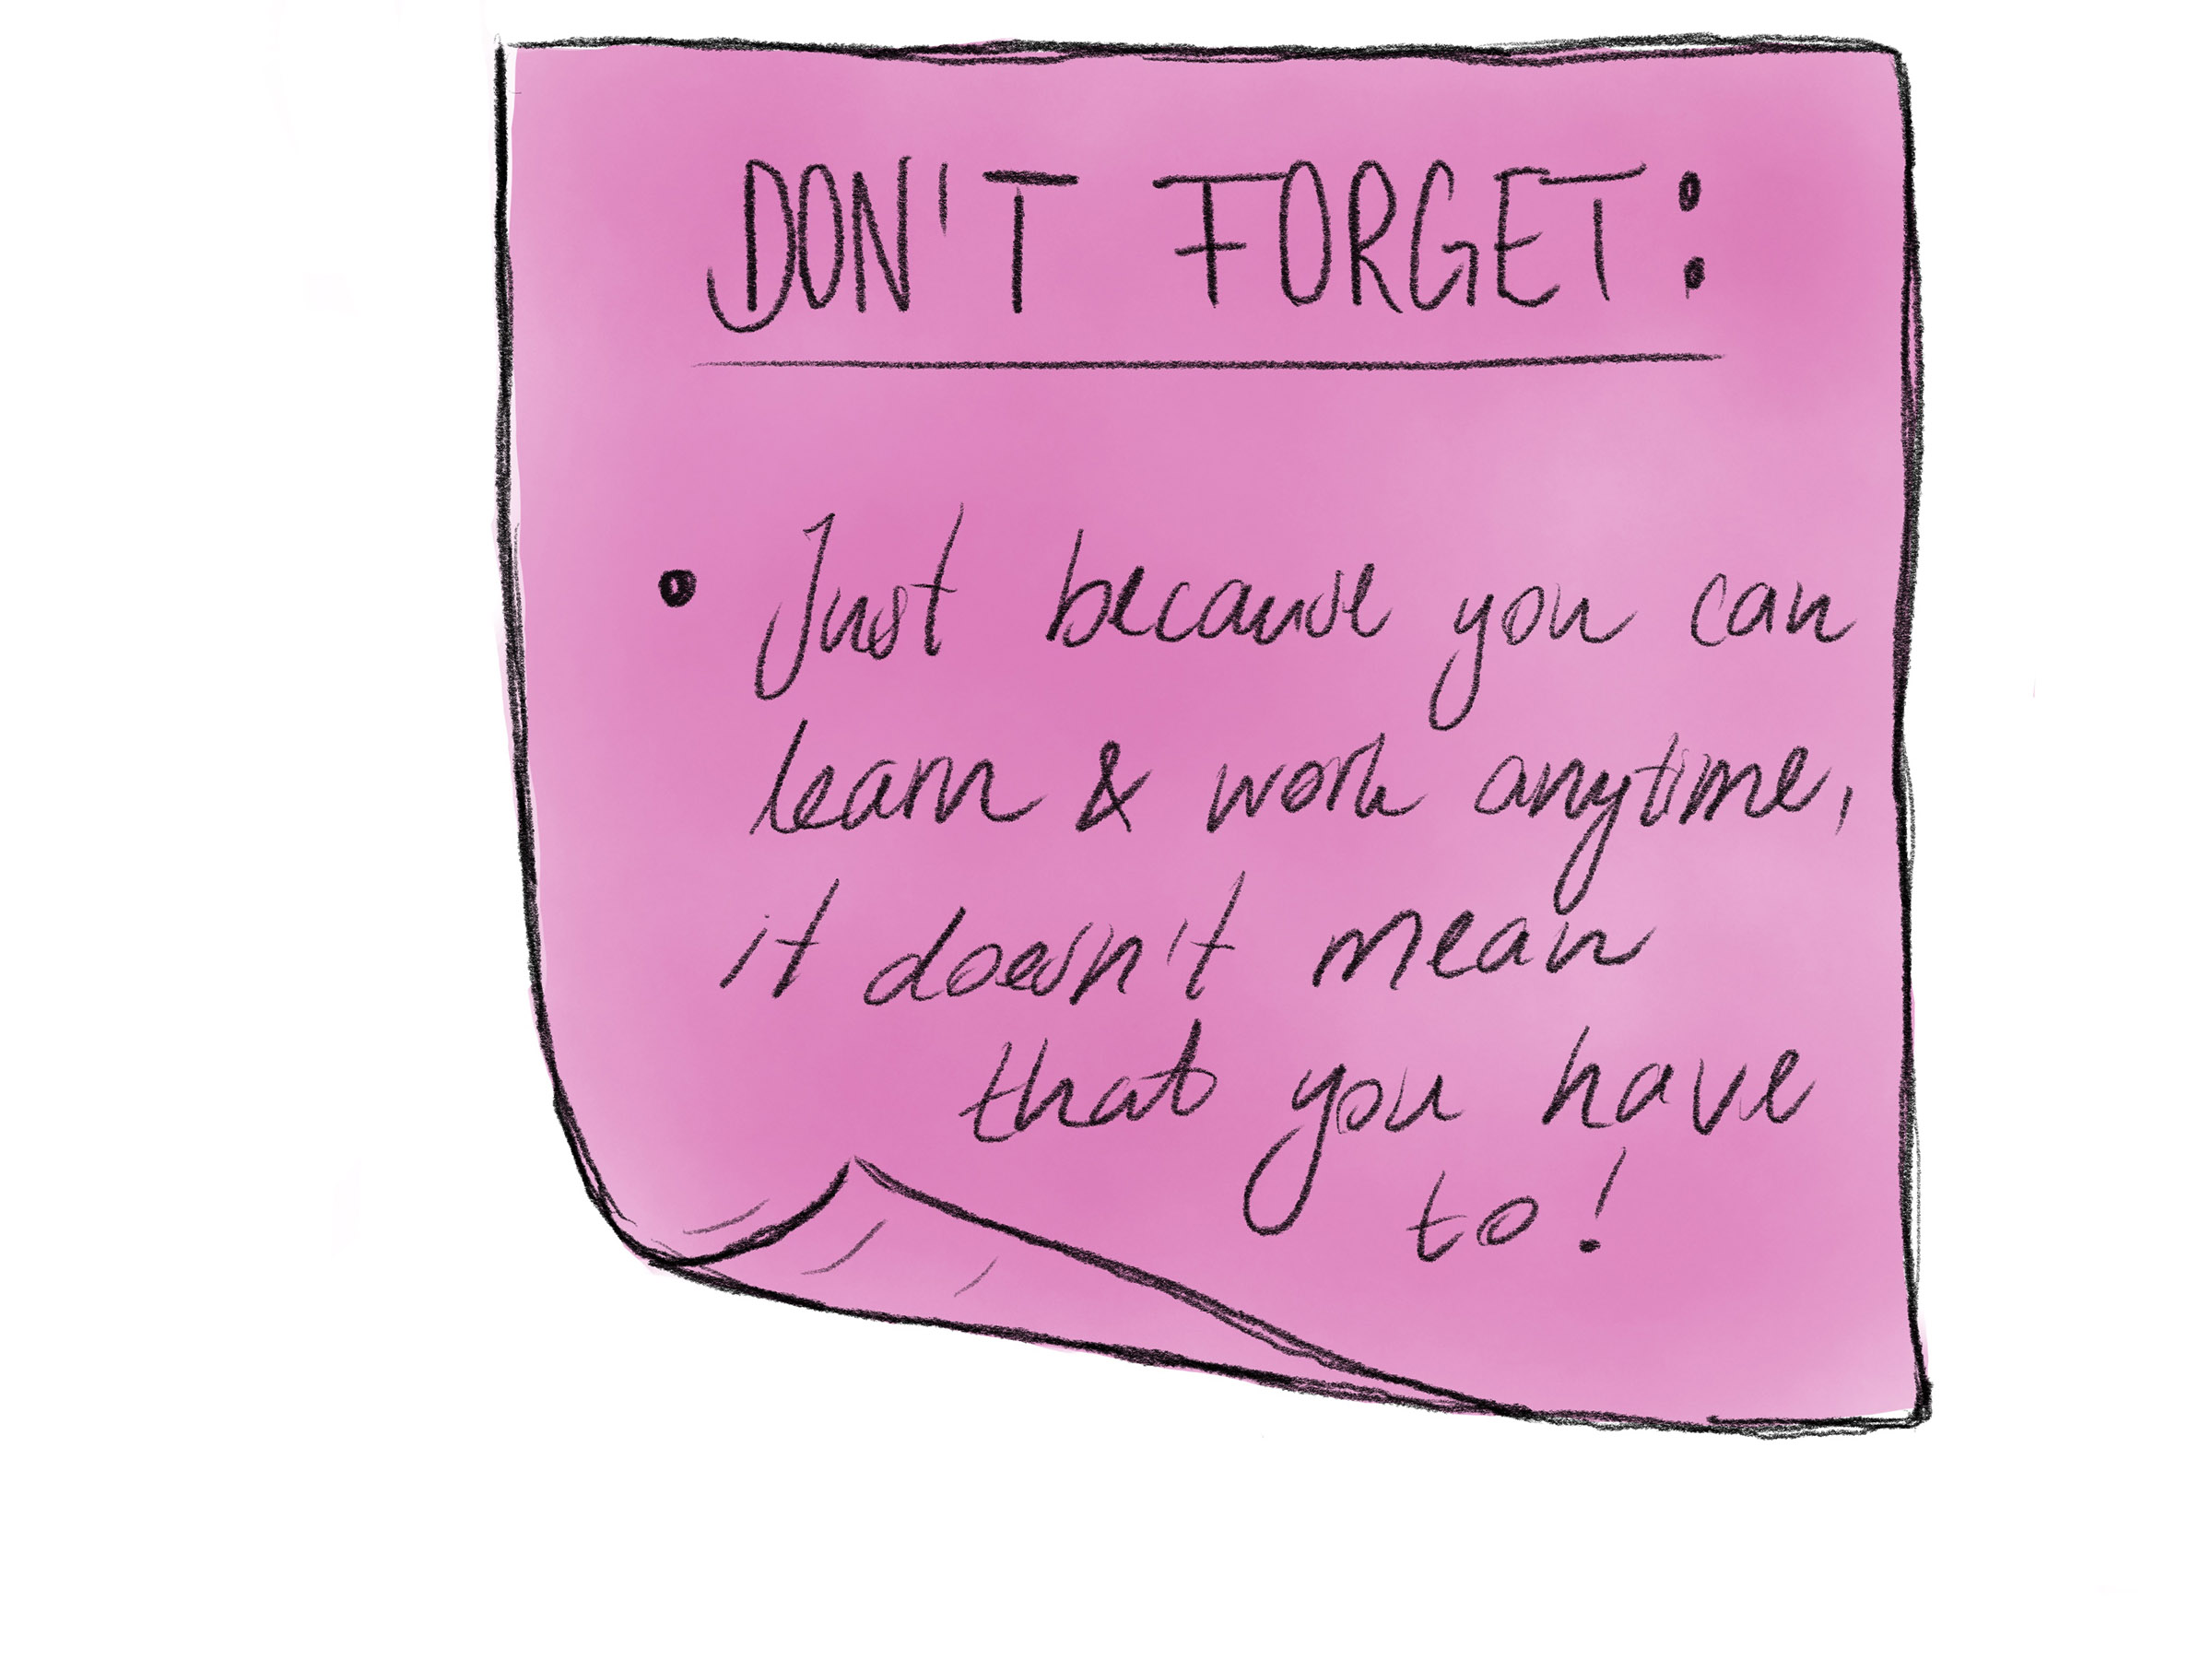 DON'T FORGET:
• Just because you can
learn & work anytime,
it doesn't mean
that you have
to!